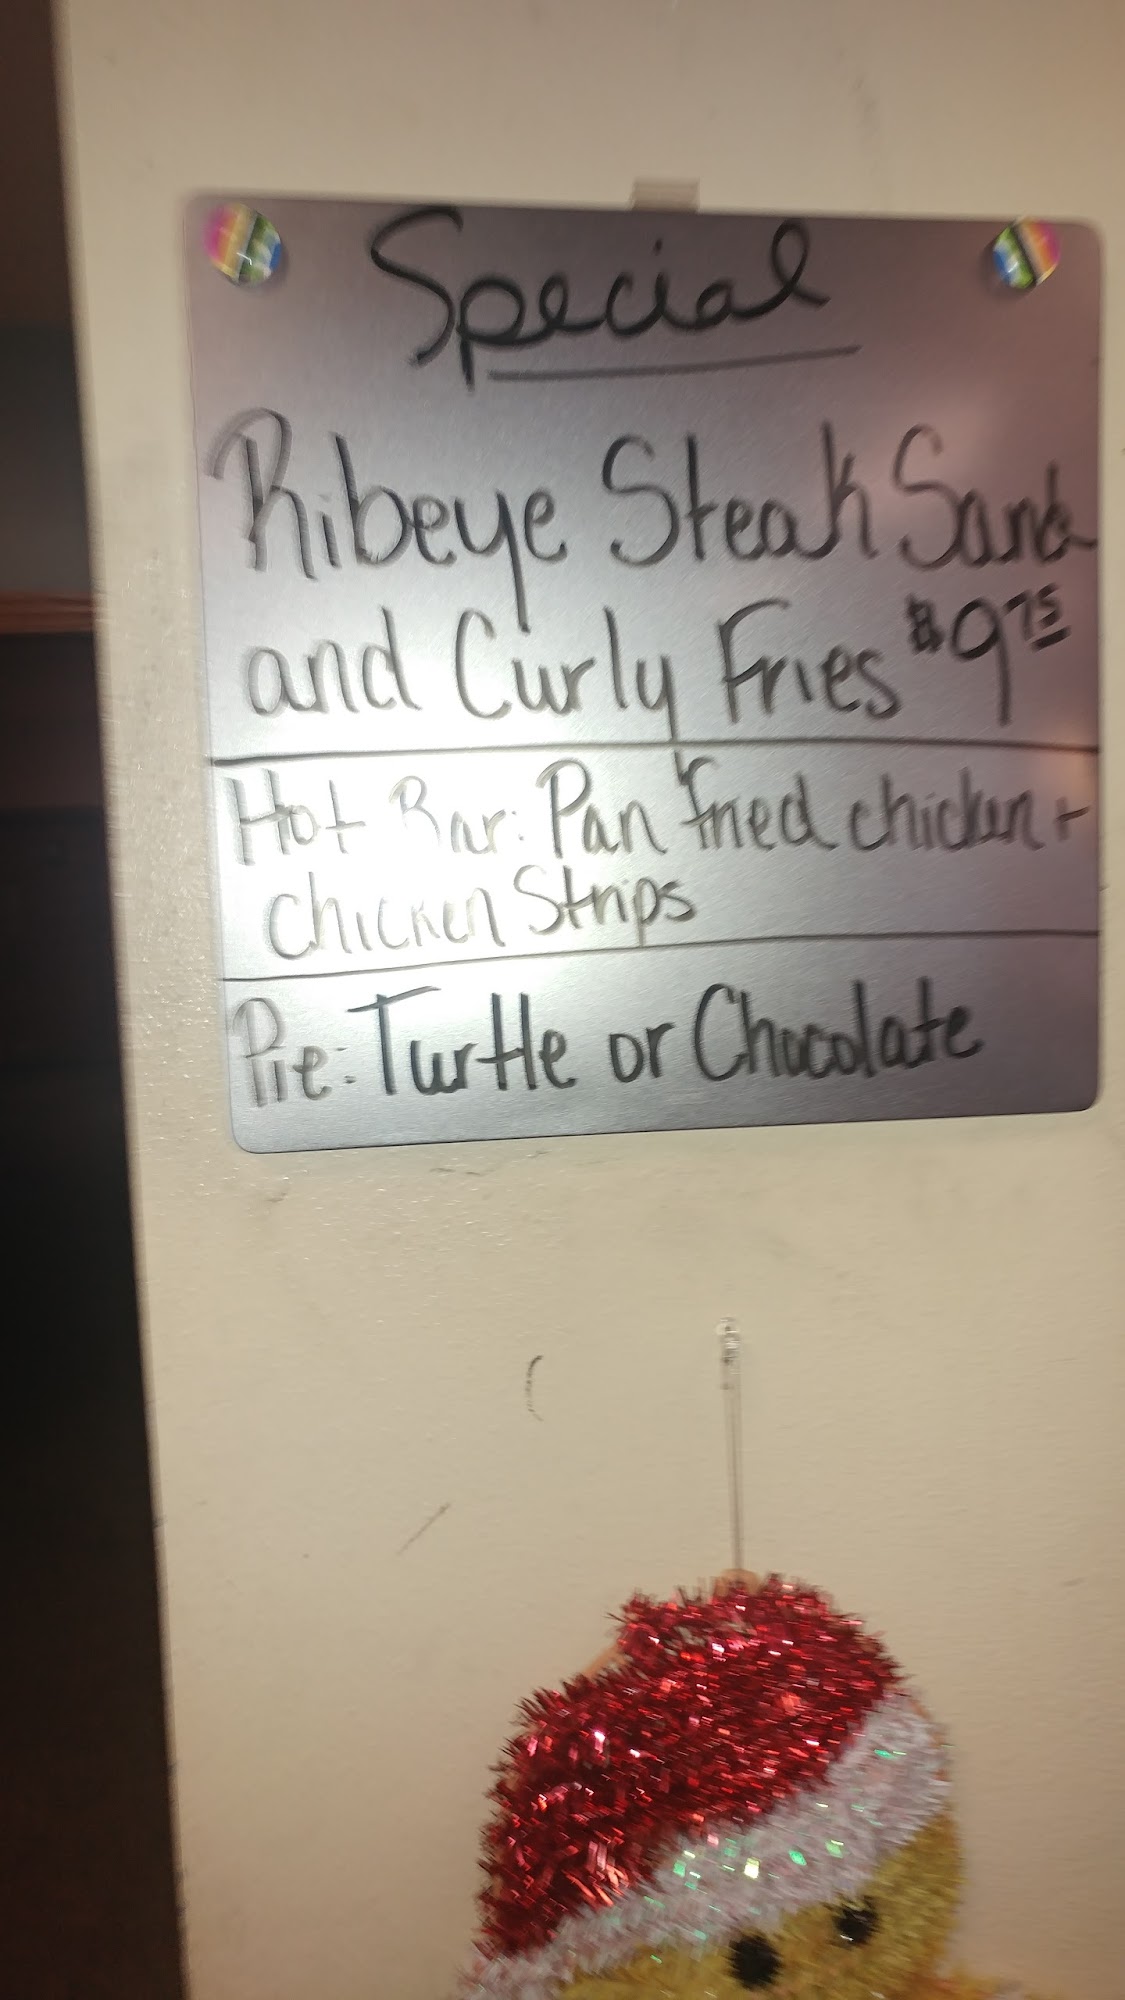 Special
Ribeye Steak Sand
and Curly Fries $9.75
Hot Bar: Pan fried chicken +
chicken Strips
Pie: Turtle or Chocolate